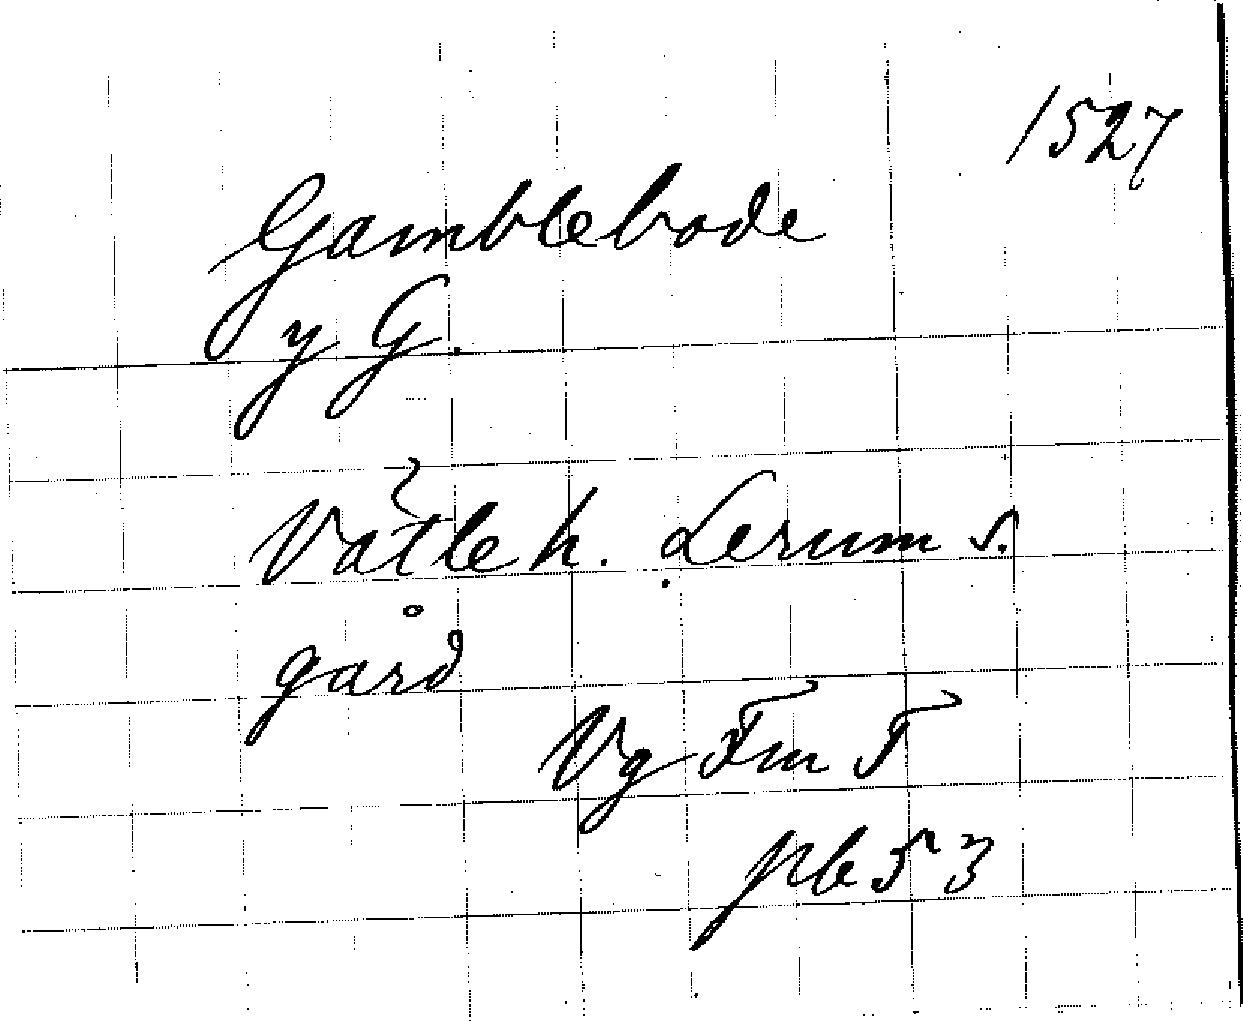 1527
Gamblebode
y G.
Vätle h. Lerum s.
gård
Vg Fm T
pb 53